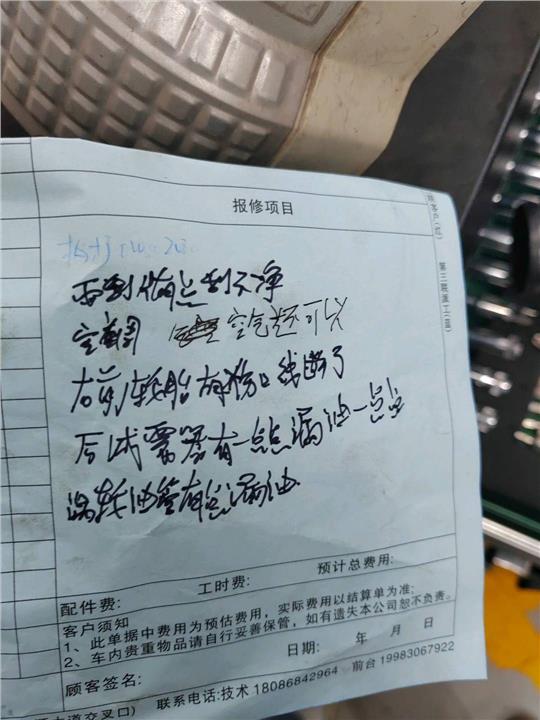 报修项目
雨刮有点刮不净
空气还可以
右前轮胎有伤口线断了
后减震器有一点点漏油一点点
涡轮油管有点漏油
预计总费用:
工时费:
配件费:
客户须知
1、此单据中费用为预估费用，实际费用以结算单为准;
2、车内贵重物品请自行妥善保管，如有遗失本公司恕不负责。
日期: 年 月 日
顾客签名:
联系电话:技术 18086842964 前台 19983067922
大道交叉口)
第三联派工(蓝)